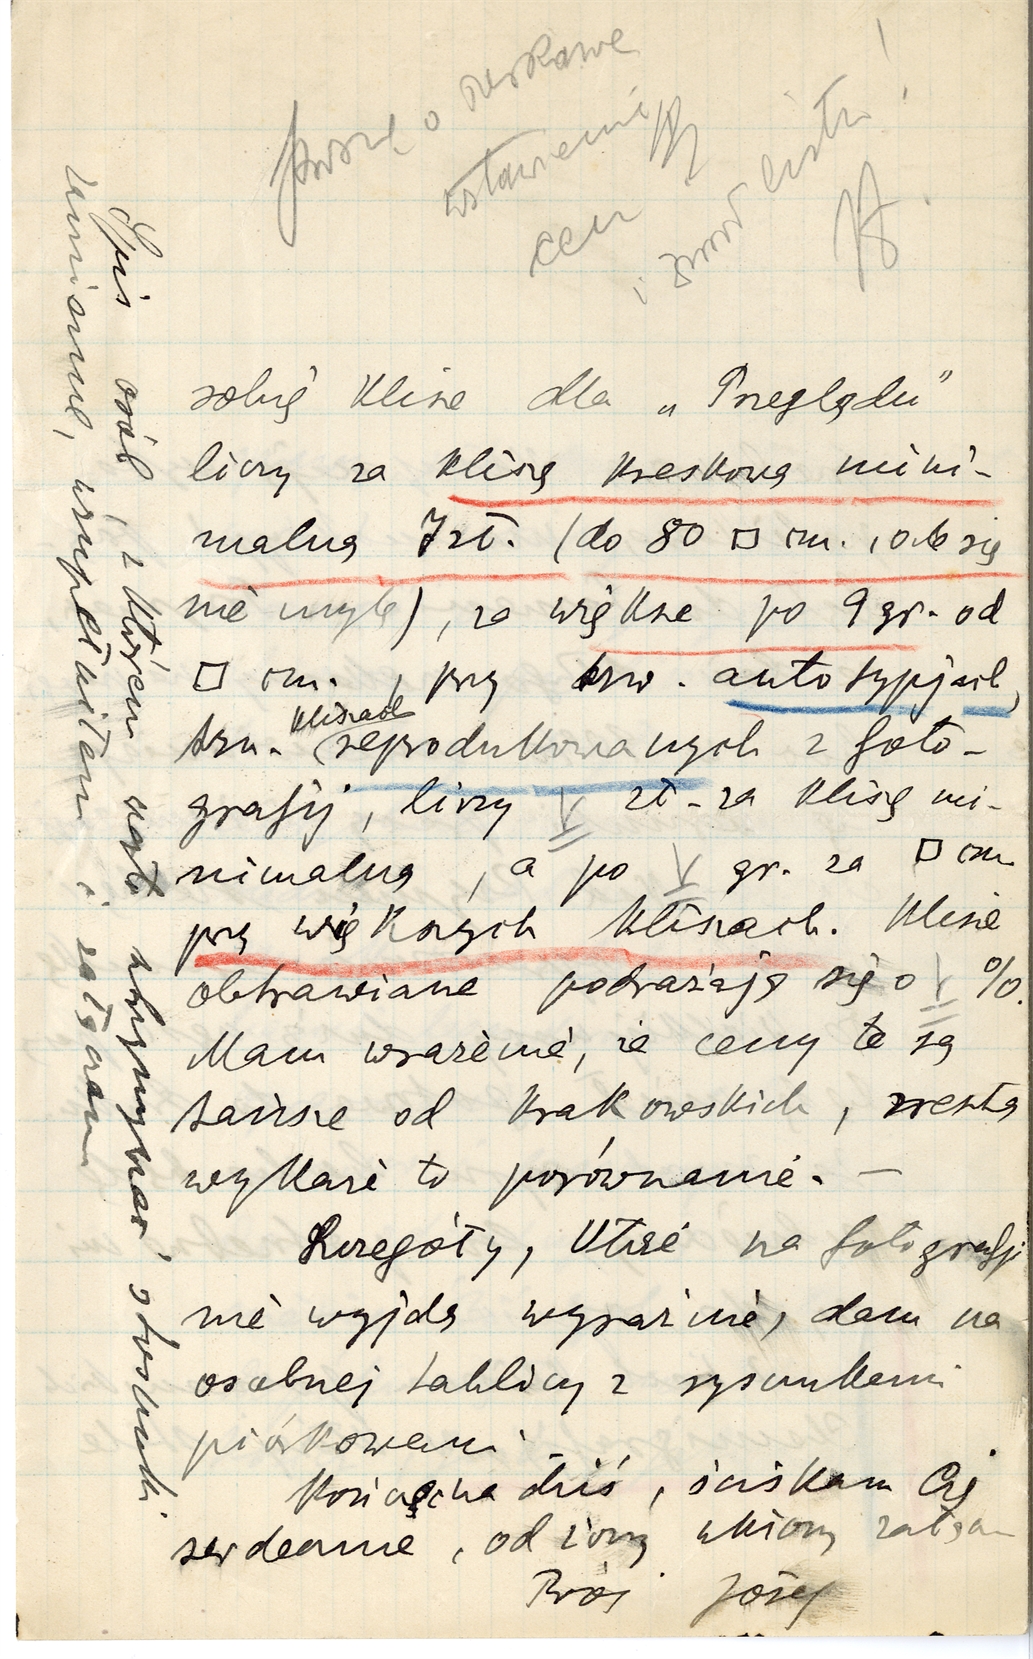 Proszę o łaskawe
wstawienie
cen
i zwrot listu!
robię klisze dla „Przeglądu"
liczy za kliszę kreskową mini-
malną 7 zł. (do 80 □ cm., o ile się
nie mylę), za większe po 9 gr. od
□ cm., przy tzw. autotypjach,
tzn. kliszach reprodukowanych z foto-
grafij, liczy zł. za kliszę mi-
nimalną, a po gr. za □ cm
przy większych kliszach. Klisze
obtrawiane podrażają się o %.
Mam wrażenie, że ceny te są
tańsze od krakowskich, zresztą
wykaże to porównanie. —
Szczegóły, które na fotografji
nie wyjdą wyraźnie, dam na
osobnej tablicy z rysunkami
piórkowemi.
Kończę na dziś, ściskam Cię
serdecznie, od żony ukłony załączam
Twój Józef
Spis osób, z którem warto utrzymywać stosunki
wymienne, uzupełniłem i załączam